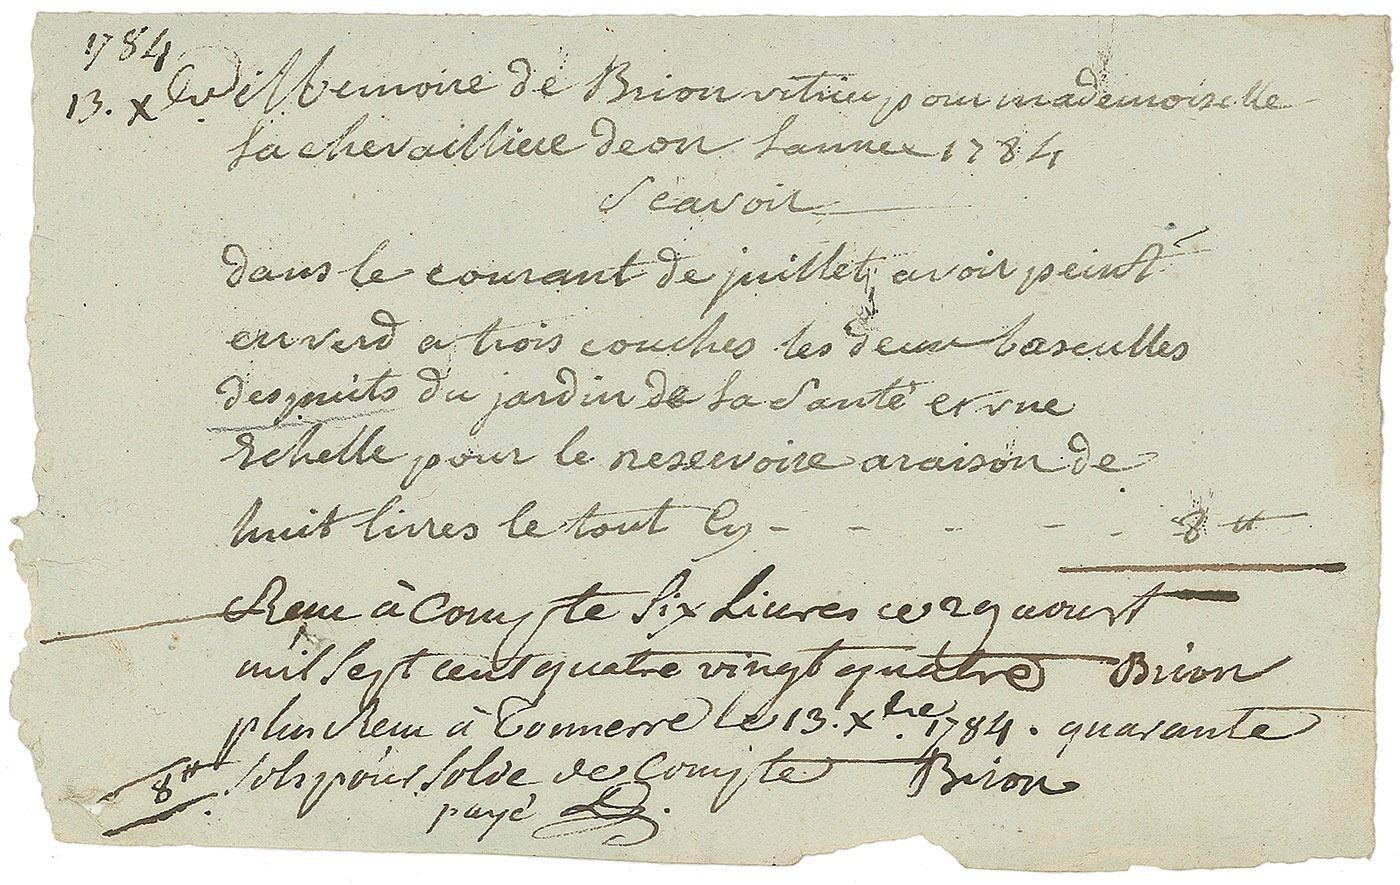 1784
13. Xbre Memoire de Brion vitrier pour mademoiselle
la chevailliere deon lannee 1784
Scavoir
dans le courant de juillet avoir peint
en verd a trois couches les deux basculles
des puits du jardin de la santé et une
Echelle pour le reservoire a raison de
huit livres le tout Cy - - - - - 8 tt
Receu à Compte Six Livres ce 29 aoust
mil Sept cent quatre vingt quatre Brion
plus Receu à Tonnerre le 13. Xbre 1784. quarante
8 tt Sols pour Solde de Compte Brion
payé